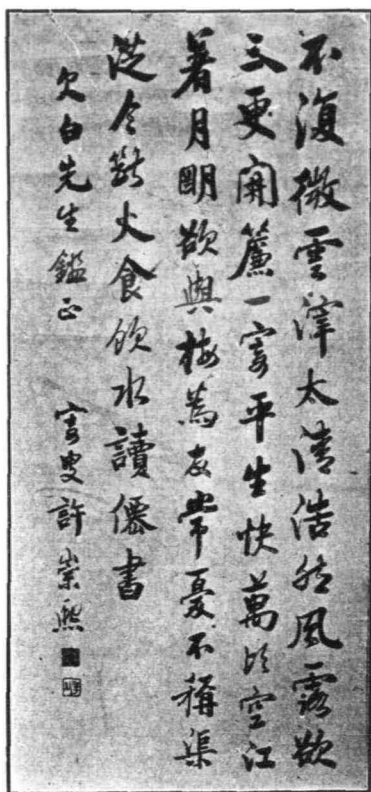 不復微雲滓太清浩然風露欲
三更開簾一寄平生快萬頃空江
著月明欲與梅為友常憂不稱渠
從今斷火食飲水讀僊書
欠白先生鑑正 寄叟許崇熙